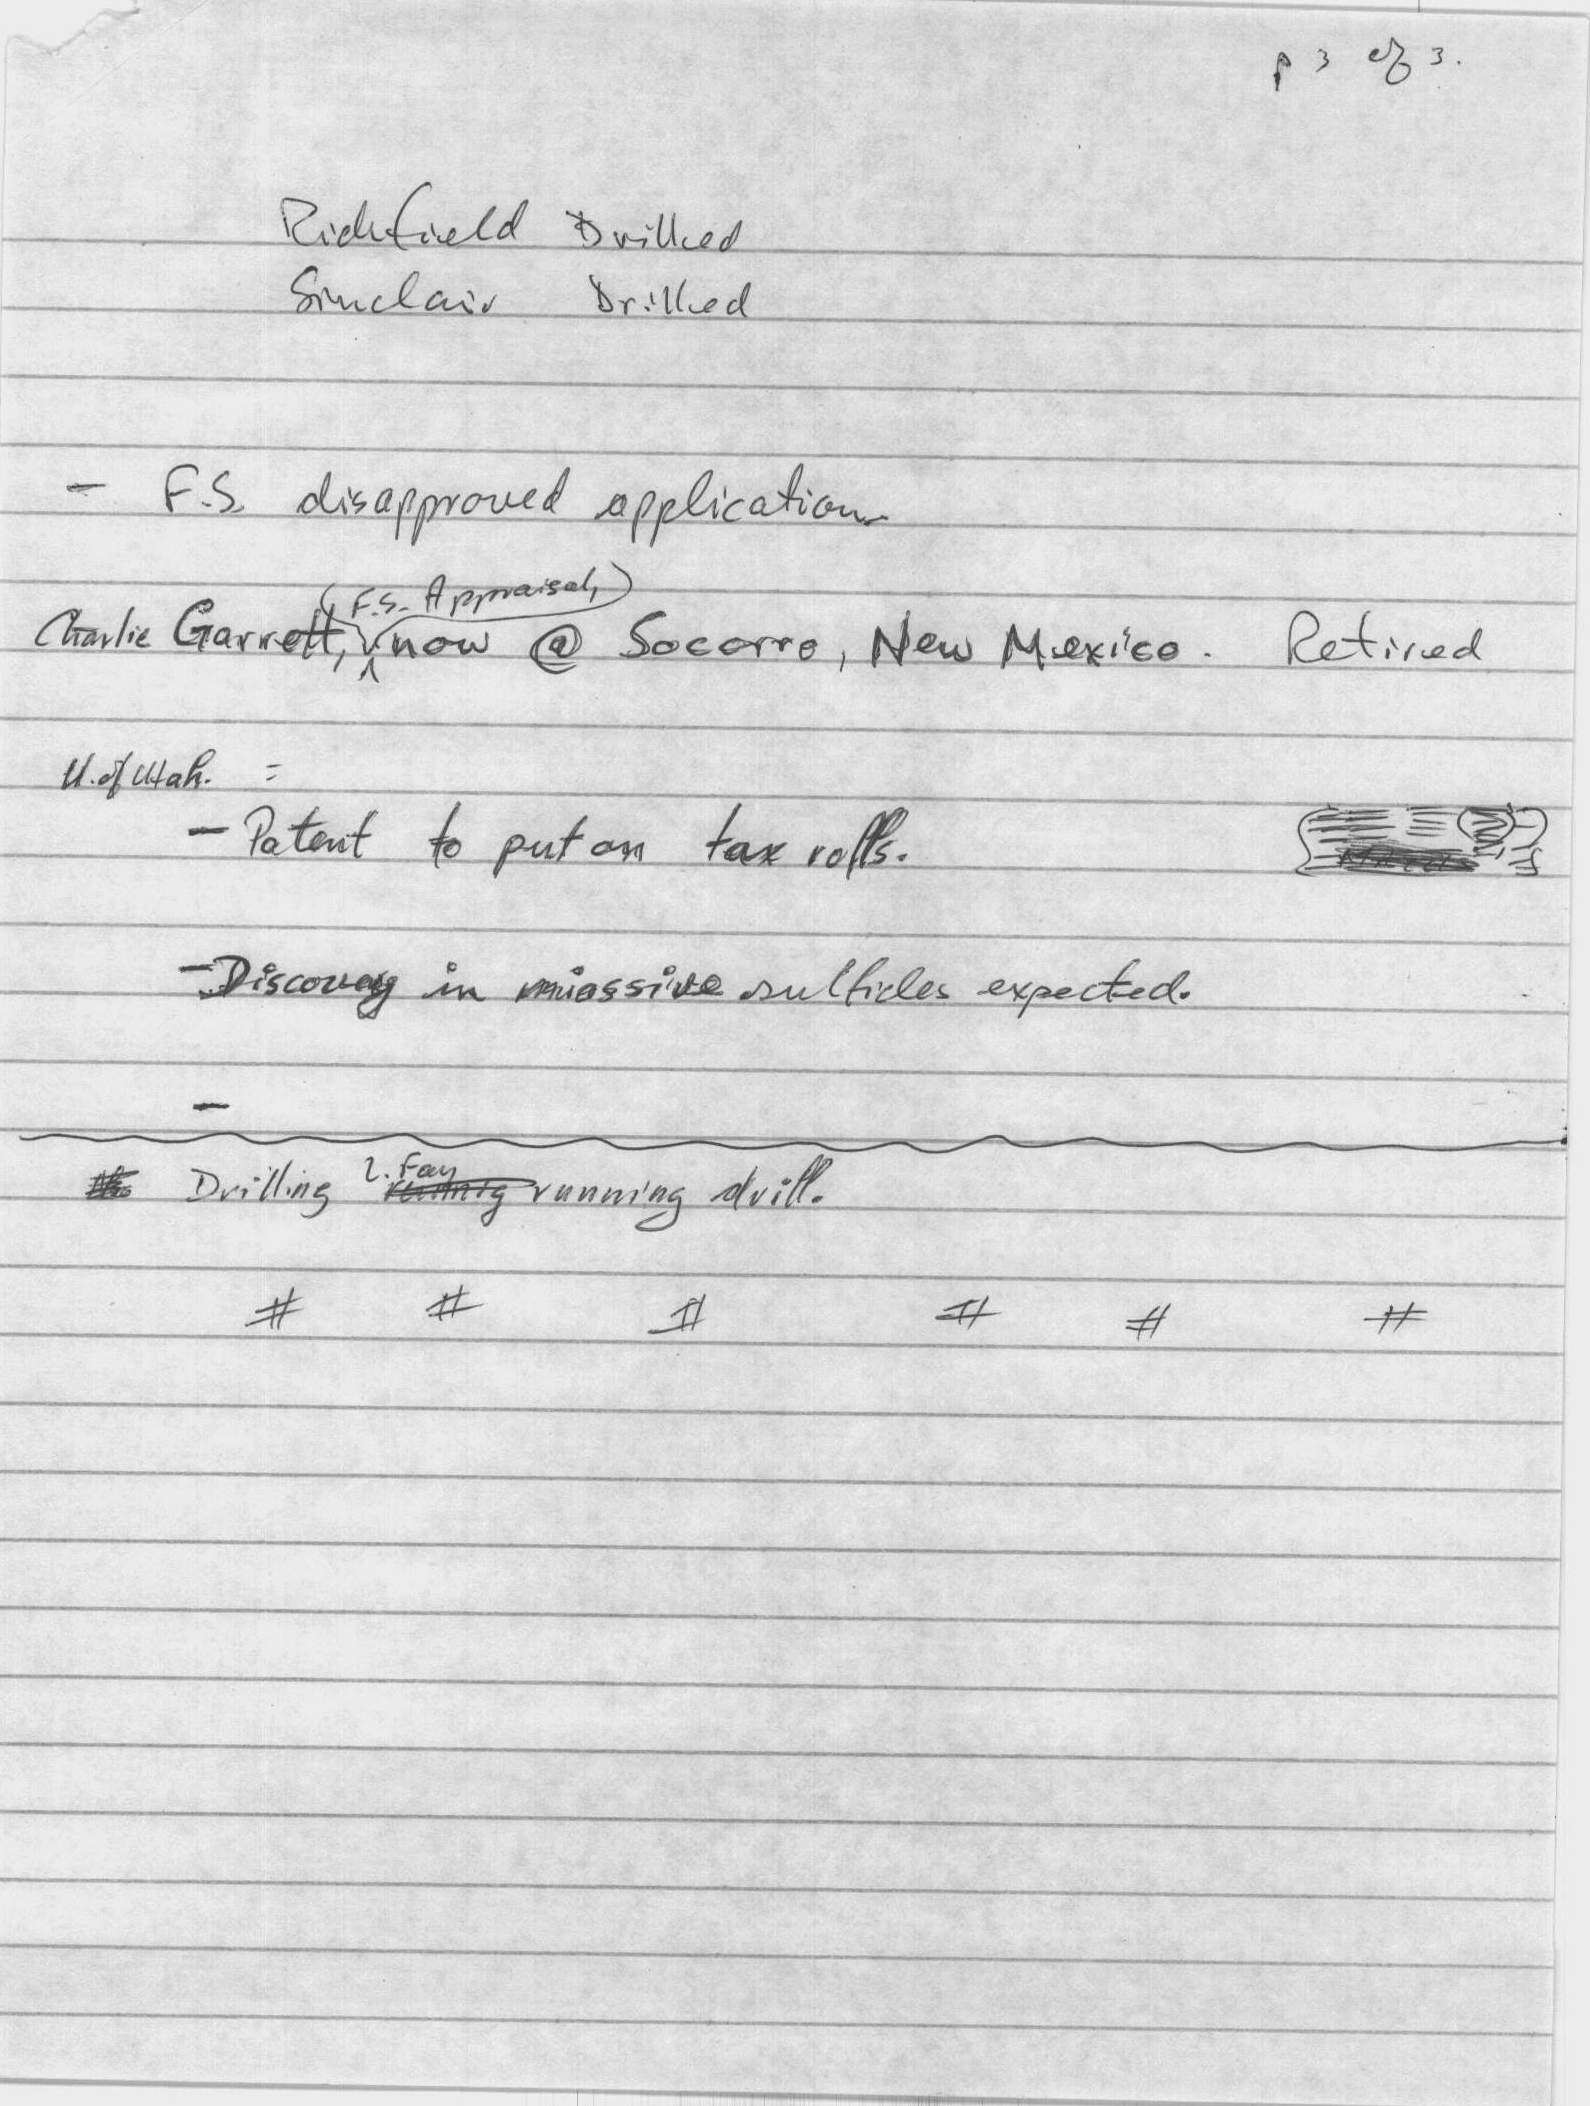 p 3 of 3.
Richfield Drilled
Sinclair Drilled
- F.S. disapproved application
(F.S. Appraisal,)
Charlie Garrett, now @ Socorro, New Mexico. Retired
U. of Utah. =
- Patent to put on tax rolls.
- Discovery in massive sulfides expected.
-
Drilling L. Fay running drill.
# # # # # #